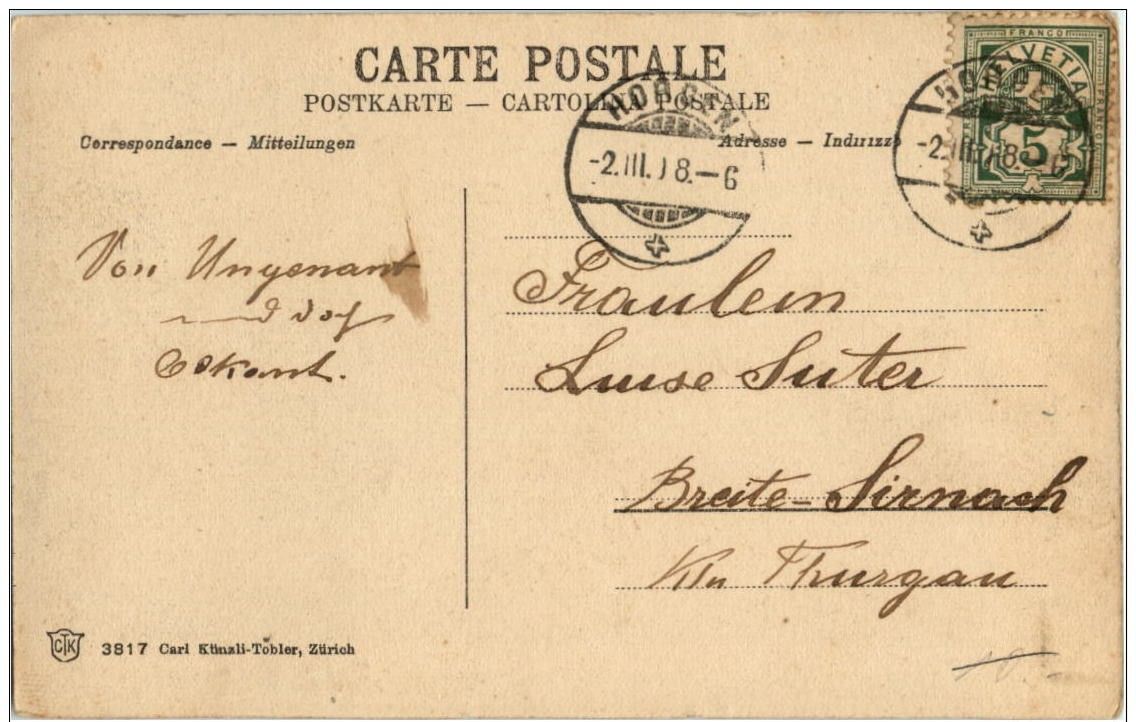 CARTE POSTALE
POSTKARTE — CARTOLINA POSTALE
Correspondance — Mitteilungen
Adresse — Indirizzo
HORGEN
-2.III.08.–6
HORGEN
-2.III.08.–6
FRANCO
HELVETIA
FRANCO
5
Von Ungenant
und doch
Bekant.
Fräulein
Luise Suter
Breite-Sirnach
Ktn Thurgau
CTK 3817 Carl Künzli-Tobler, Zürich